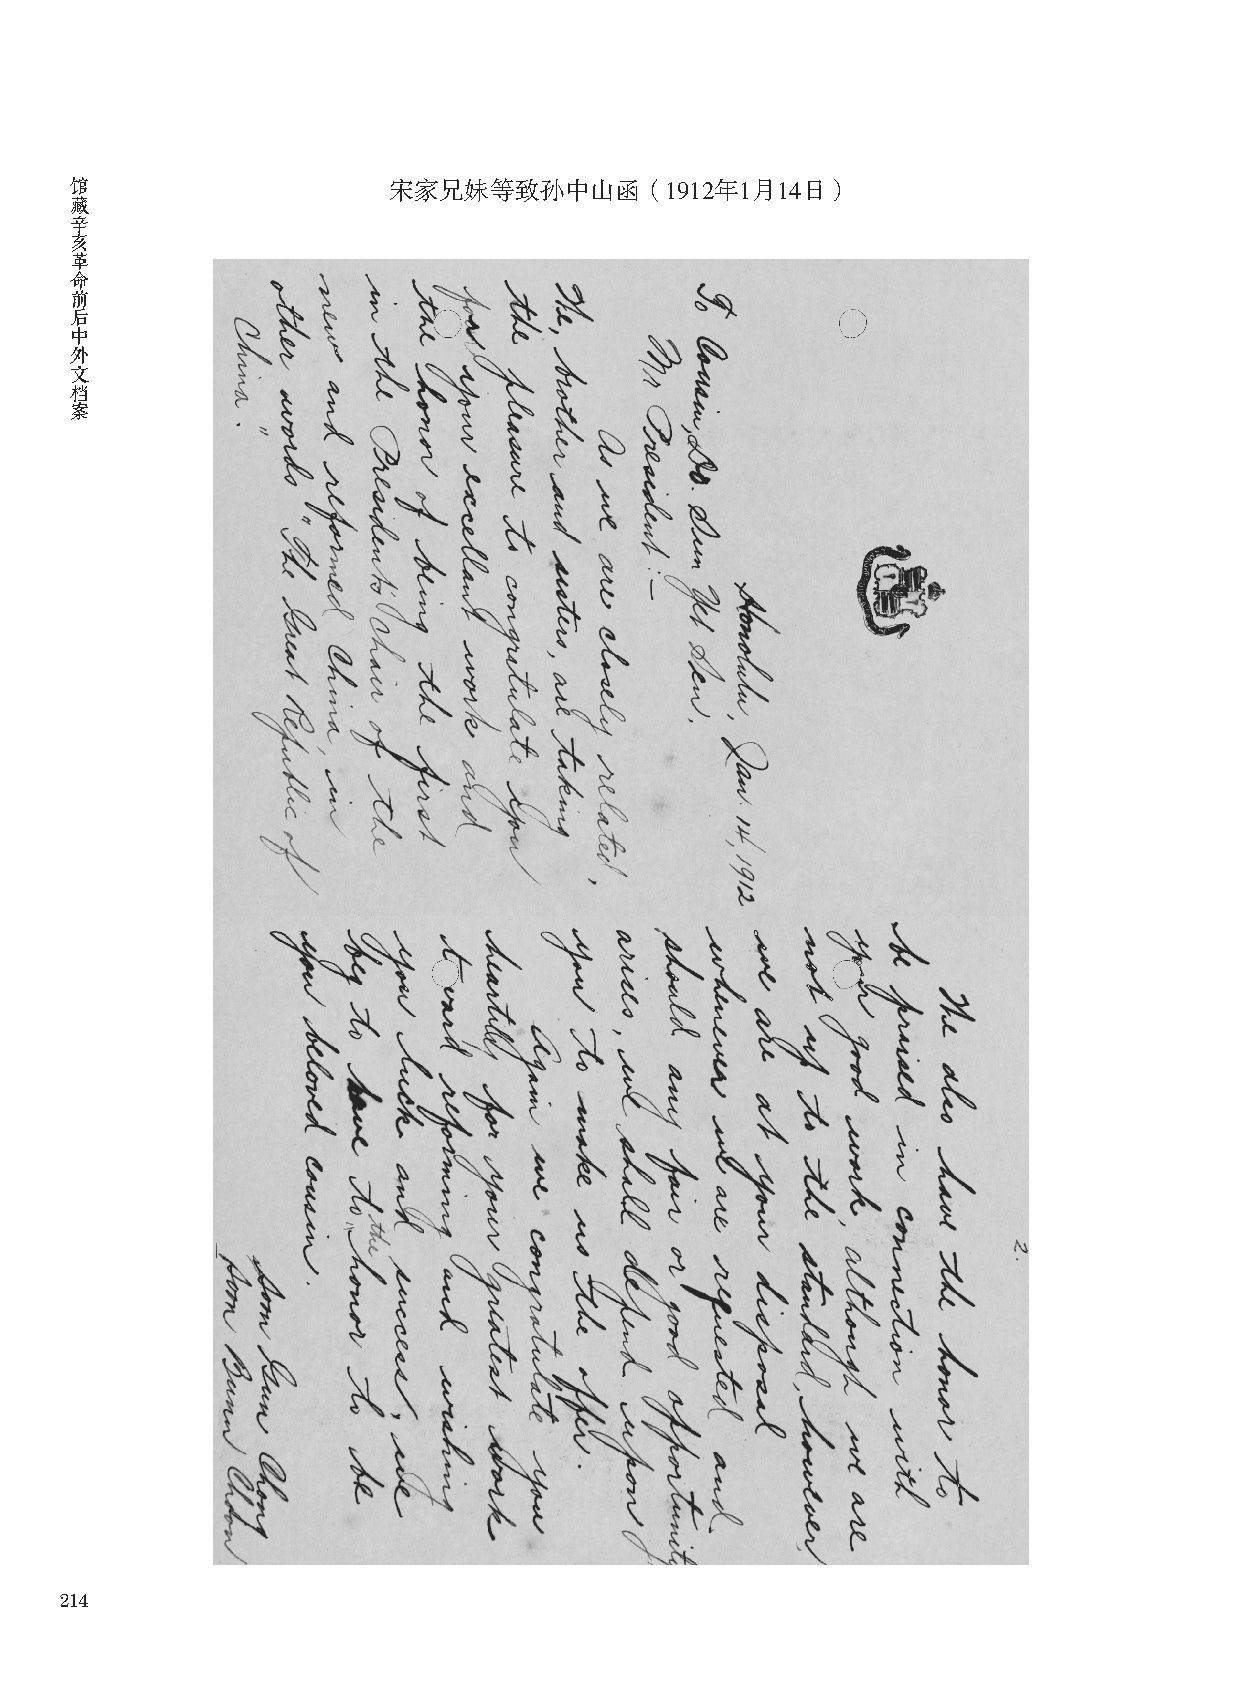 馆藏辛亥革命前后中外文档案
宋家兄妹等致孙中山函（1912年1月14日）
Honolulu, Jan. 14, 1912
To Cousin, Dr. Sun Yet Sen.
Mr President:—
As we are closely related,
The, brother and sisters, are taking
the pleasure to congratulate you
for your excellant work and
the honor of being the first
in the President's chair of the
new and reformed China, in
other words "The Great Republic of
China."
2.
We also have the honor to
be praised in connection with
your good work, although we are
not up to the standard, however,
we are at your disposal
whenever we are requested and
should any fair or good opportunity
arises, we shall depend upon
you to make us the offer.
Again we congratulate you
heartily for your greatest work
toward reforming and wishing
you luck and success, we
beg to have to "the honor to be
you beloved cousin.
Hom Gun Chong
Hom Bunn Choon
214